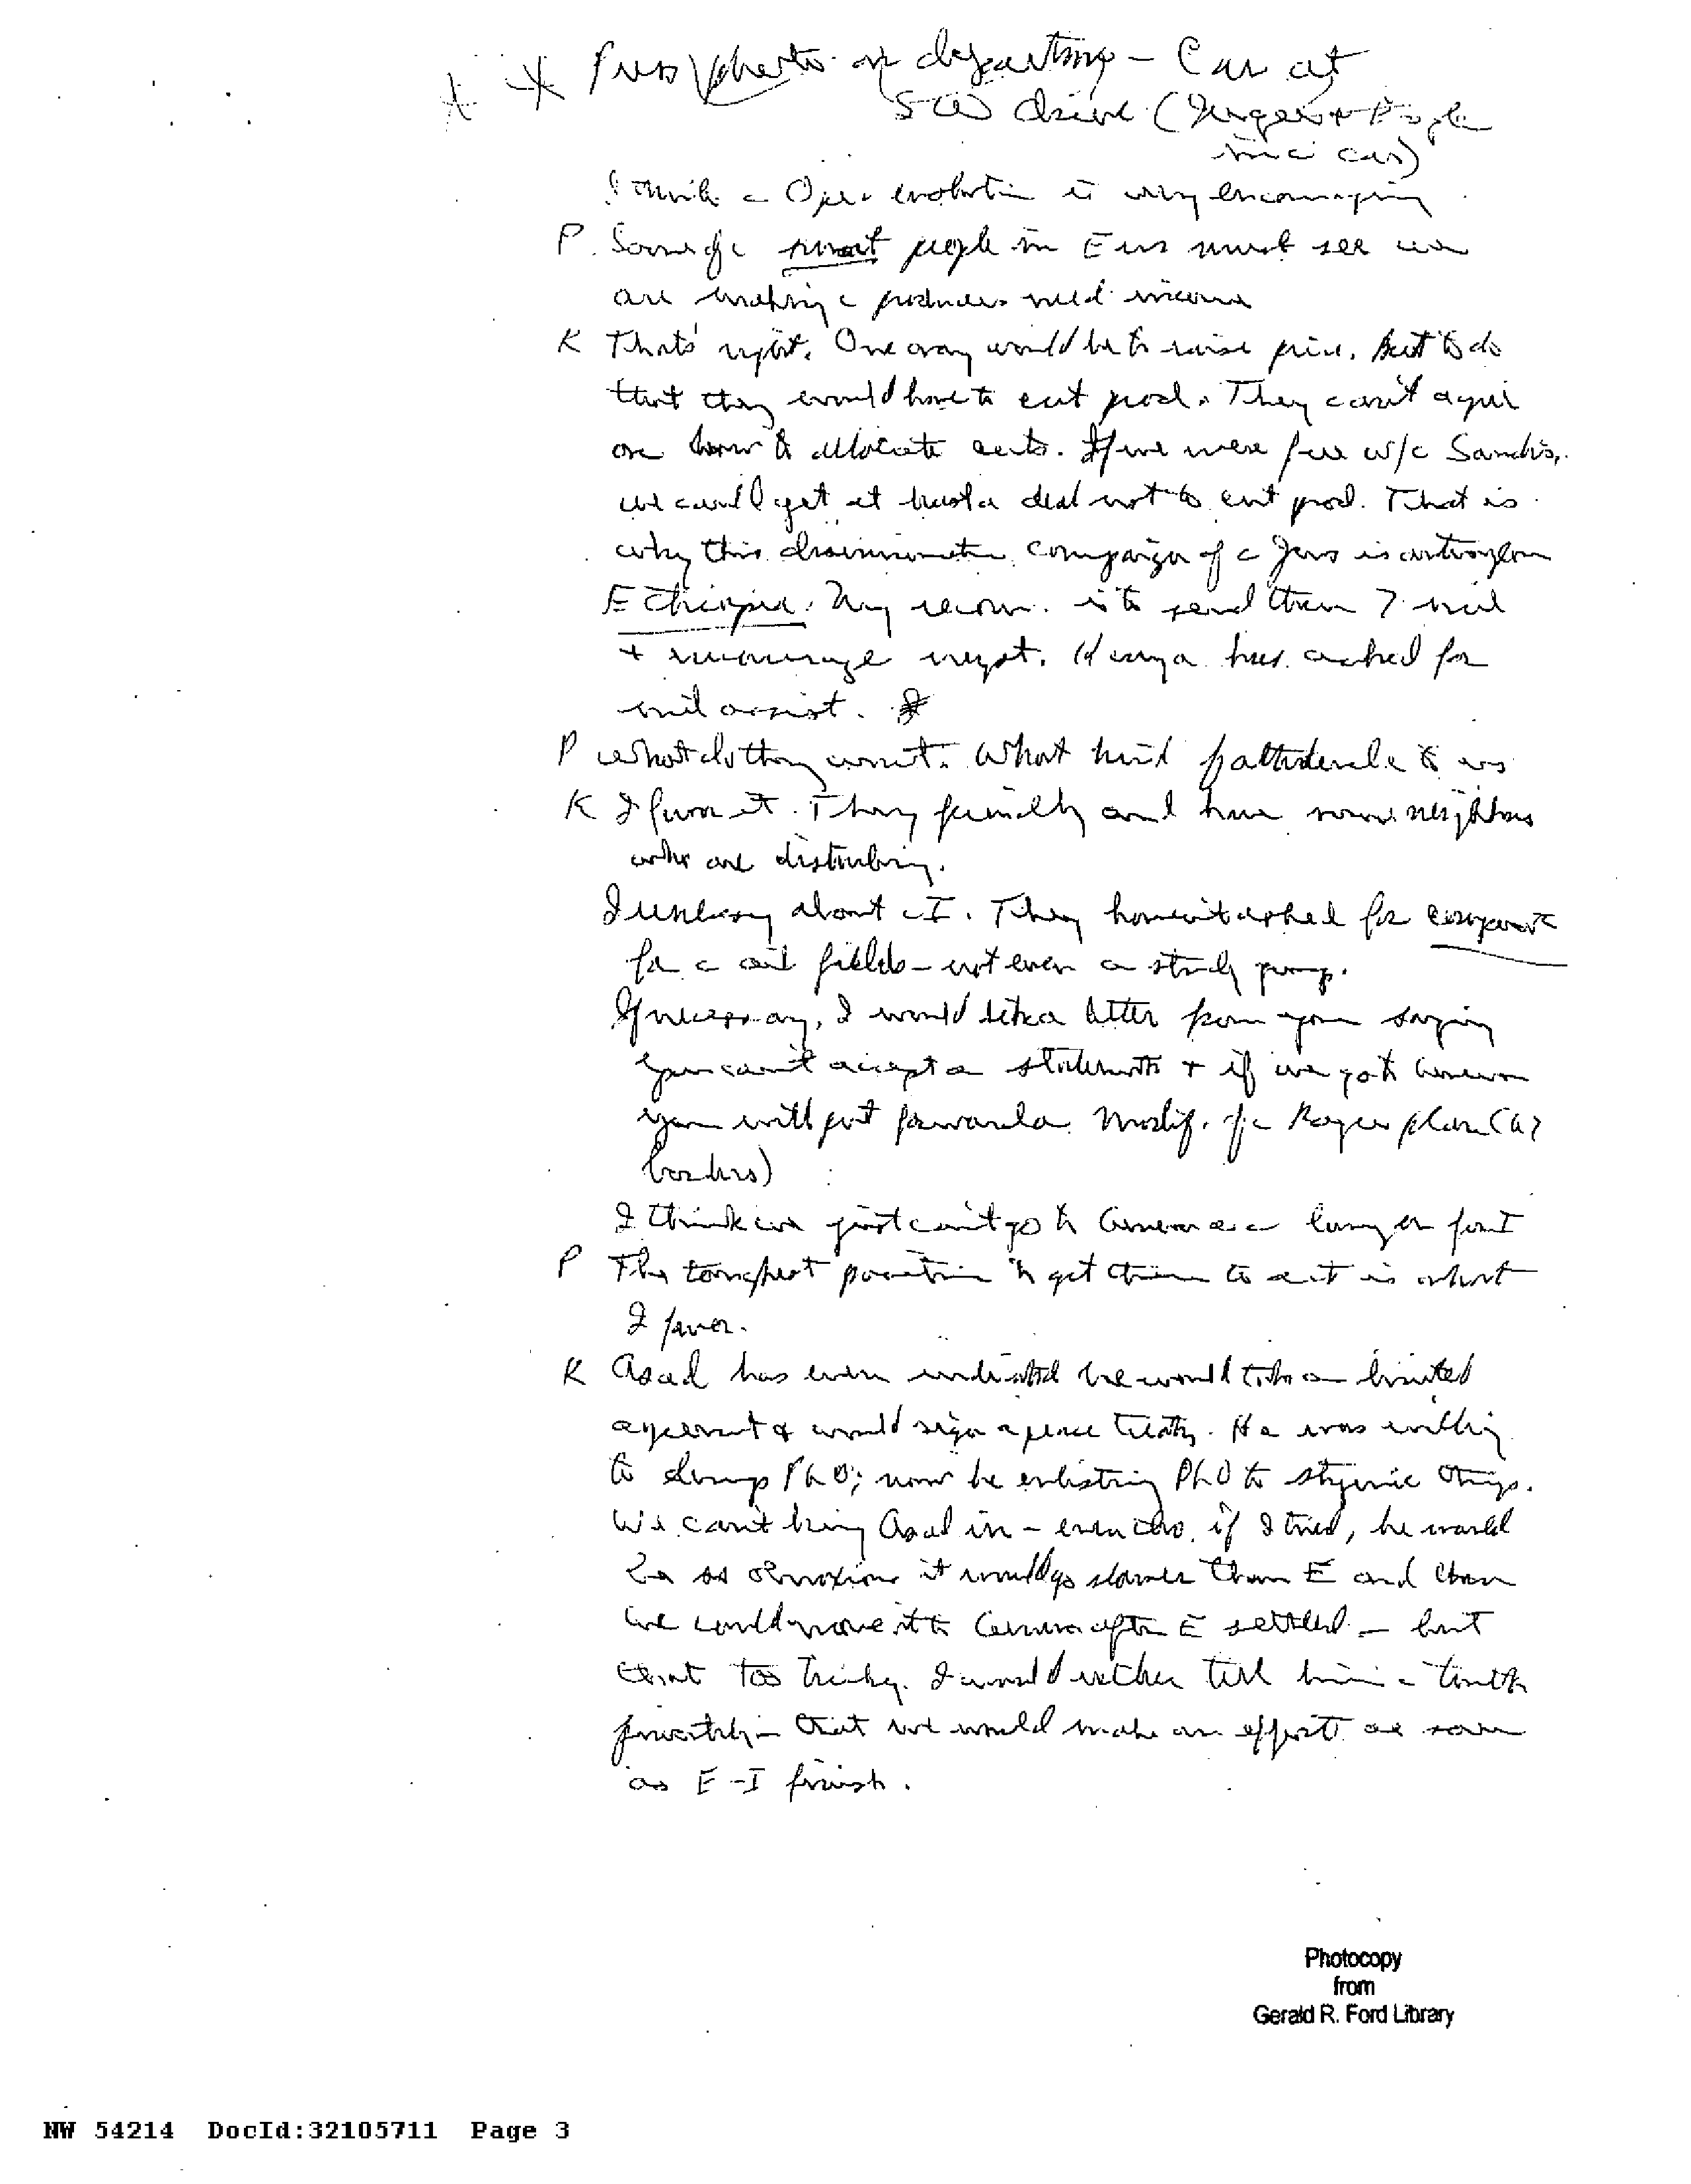 Press photo on departing - Car at
SW drive (
in a car)
I think c Opec evolution is very encouraging
P. Some of c smart people in Eur must see we
are making c producers need income
K That's right. One way would be to raise price. But to do
that they would have to cut prod. They can't agree
on how to allocate cuts. If we were free w/c Saudis,
we could get at least a deal not to cut prod. That is
why this discrimination campaign of c Jews is
Ethiopia: My recom. is to send them 7 mil
+ encourage negot. Kenya has asked for
mil assist.
P What do they want. What kind
K I favor it. They friendly and have some neighbors
who are disturbing.
I uneasy about c I. They haven't asked for
for c oil fields - not even a study group.
If necessary, I would like a letter from you saying
you can't accept a stalemate + if we go to Geneva
you will put forward a modif. of c Rogers plan (67
borders)
I think we just can't go to Geneva as c lawyer for I
P The toughest position to get them to act is what
I favor.
K Asad has even indicated he would take a limited
agreement & would sign a peace treaty. He was willing
to dump PLO; now he enlisting PLO to stymie things.
We can't bring Asad in - even tho if I tried, he would
be so obnoxious it would go slower than E and then
we could move it to Geneva after E settled - but
that too tricky. I would rather tell him c truth
privately - that we would make an effort as soon
as E-I finish.
Photocopy
from
Gerald R. Ford Library
NW 54214 DocId:32105711 Page 3